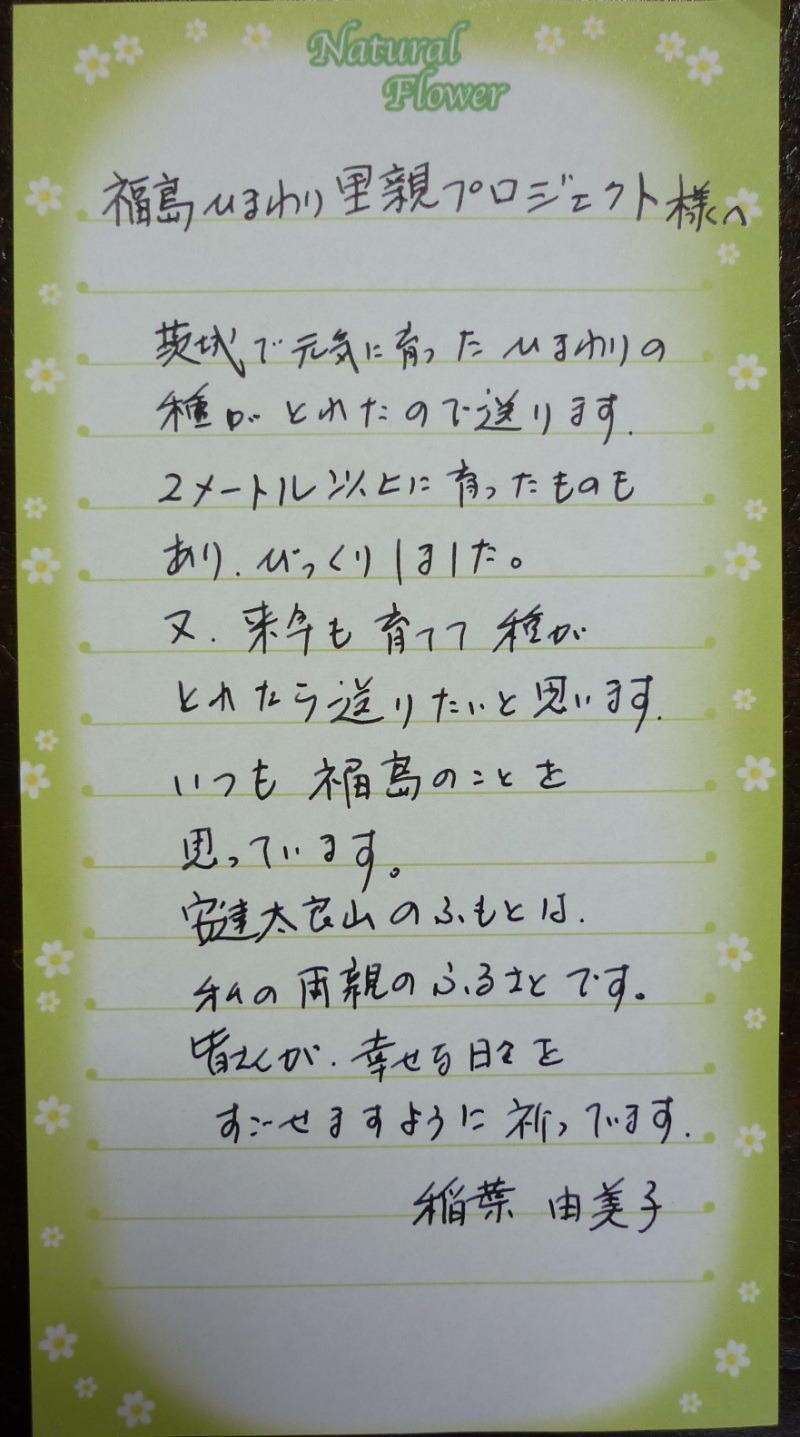 Natural
Flower
福島ひまわり里親プロジェクト様へ
茨城で元気に育ったひまわりの
種がとれたので送ります.
2メートル以上に育ったものも
あり.びっくりしました。
又.来年も育てて種が
とれたら送りたいと思います.
いつも福島のことを
思っています。
安達太良山のふもとは.
私の両親のふるさとです。
皆さんが.幸せな日々を
すごせますように祈ってます.
稲葉 由美子